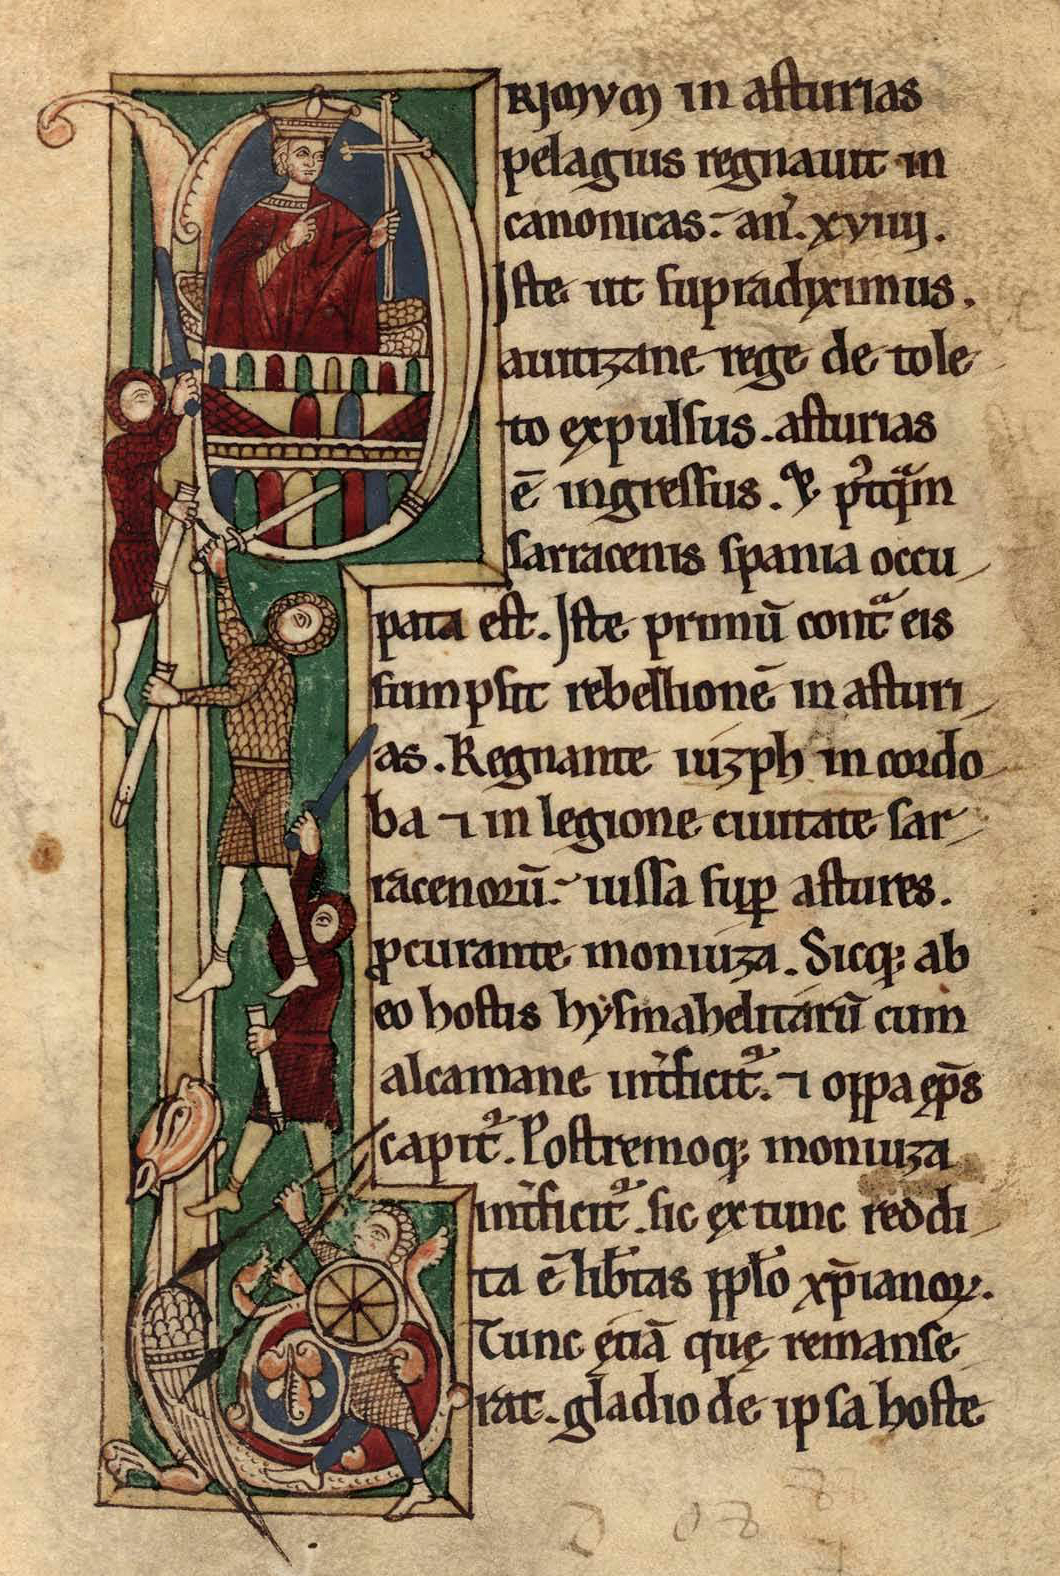 PRIMUM in asturias
pelagius regnauit in
canonicas. an̄. xviiij.
Iste ut supradyximus.
auitizane rege de tole
to expulsus. asturias
ē ingressus. & p'tqam
sarracenis spania occu
pata est. Iste primū cont̄a eis
sumpsit rebellionē in asturi
as. Regnante iuzph in cordo
ba ⁊ in legione ciuitate sar
racenorū. iussa sup astures.
pcurante moniuza. Sicq; ab
eo hostis hysmahelitarū cum
alcamane int̄ficit᷑. ⁊ oppa ep̄s
capit᷑. Postremoq; moniuza
int̄ficit᷑. sic ex tunc reddi
ta ē lib̄tas pplo xp̄ianoꝝ.
Tunc etiā que remanse
rat. gladio de ipsa hoste